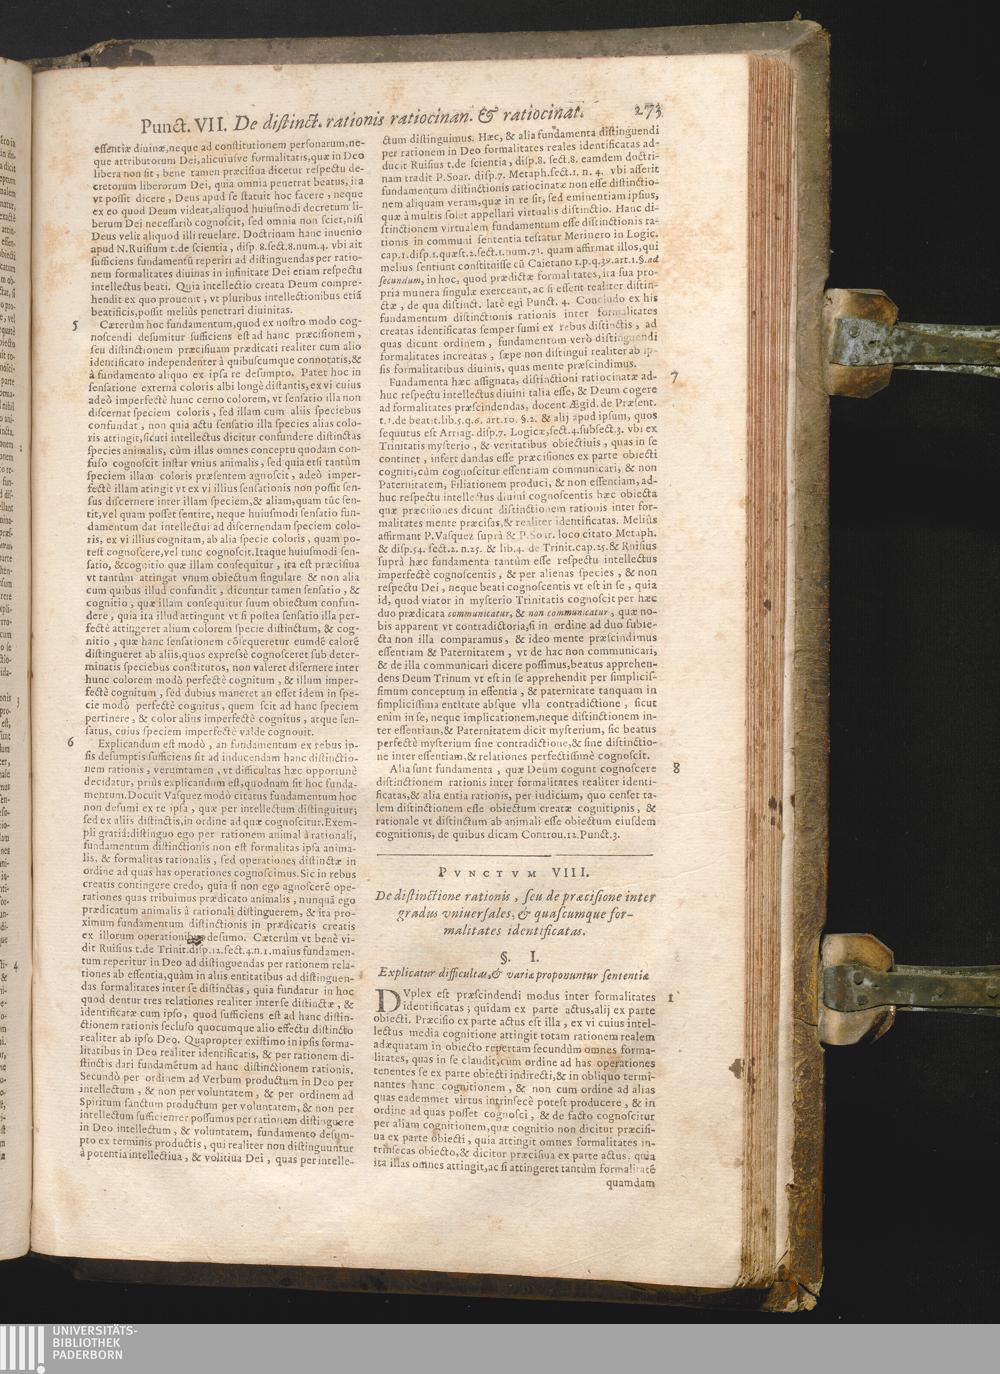 Punct. VII. De distinct. rationis ratiocinan. & ratiocinat. 273
essentiæ diuinæ, neque ad constitutionem personarum, ne-
que attributorum Dei, alicuiusve formalitatis, quæ in Deo
libera non sit, bene tamen præcisiua dicetur respectu de-
cretorum liberorum Dei, quia omnia penetrat beatus, ita
vt possit dicere, Deus apud se statuit hoc facere, neque
ex eo quod Deum videat, aliquod huiusmodi decretum li-
berum Dei necessariò cognoscit, sed omnia non sciet, nisi
Deus velit aliquod illi reuelare. Doctrinam hanc inuenio
apud N. Ruisium t. de scientia, disp. 8. sect. 8. num. 4. vbi ait
sufficiens fundamentũ reperiri ad distinguendas per ratio-
nem formalitates diuinas in infinitate Dei etiam respectu
intellectus beati. Quia intellectio creata Deum compre-
hendit ex quo prouenit, vt pluribus intellectionibus etiã
beatificis, possit meliùs penetrari diuinitas.
5 Cæterùm hoc fundamentum, quod ex nostro modo cog-
noscendi desumitur sufficiens est ad hanc præcisionem,
seu distinctionem præcisiuam prædicati realiter cum alio
identificato independenter à quibuscumque connotatis, &
à fundamento aliquo ex ipsa re desumpto. Patet hoc in
sensatione externâ coloris albi longè distantis, ex vi cuius
adeò imperfectè hunc cerno colorem, vt sensatio illa non
discernat speciem coloris, sed illam cum aliis speciebus
confundat, non quia actu sensatio illa species alias colo-
ris attingit, sicuti intellectus dicitur confundere distinctas
species animalis, cùm illas omnes conceptu quodam con-
fuso cognoscit instar vnius animalis, sed quia etsi tantùm
speciem illam coloris præsentem agnoscit, adeò imper-
fectè illam atingit vt ex vi illius sensationis non possit sen-
sus discernere inter illam speciem, & aliam, quam tũc sen-
tit, vel quam posset sentire, neque huiusmodi sensatio fun-
damentum dat intellectui ad discernendam speciem colo-
ris, ex vi illius cognitam, ab alia specie coloris, quam po-
test cognoscere, vel tunc cognoscit. Itaque huiusmodi sen-
satio, & cognitio quæ illam consequitur, ita est præcisiua
vt tantùm attingat vnum obiectum singulare & non alia
cum quibus illud confundit, dicuntur tamen sensatio, &
cognitio, quæ illam consequitur suum obiectum confun-
dere, quia ita illud attingunt vt si postea sensatio illa per-
fectè attingeret alium colorem specie distinctum, & cog-
nitio, quæ hanc sensationem cõsequeretur eumdē calorē
distingueret ab aliis, quos expressè cognosceret sub deter-
minatis speciebus constitutos, non valeret disernere inter
hunc colorem modò perfectè cognitum, & illum imper-
fectè cognitum, sed dubius maneret an esset idem in spe-
cie modò perfectè cognitus, quem scit ad hanc speciem
pertinere, & color alius imperfectè cognitus, atque sen-
satus, cuius speciem imperfectè valde cognouit.
6 Explicandum est modò, an fundamentum ex rebus ip-
sis desumptis sufficiens sit ad inducendam hanc distinctio-
nem rationis, verumtamen, vt difficultas hæc opportunè
decidatur, priùs explicandum est, quodnam sit hoc funda-
mentum. Docuit Vasquez modò citatus fundamentum hoc
non desumi ex re ipsa, quæ per intellectum distinguitur;
sed ex aliis distinctis, in ordine ad quæ cognoscitur. Exem-
pli gratiâ: distinguo ego per rationem animal à rationali,
fundamentum distinctionis non est formalitas ipsa anima-
lis, & formalitas rationalis, sed operationes distinctæ in
ordine ad quas has operationes cognoscimus. Sic in rebus
creatis contingere credo, quia si non ego agnoscerē ope-
rationes quas tribuimus prædicato animalis, nunquã ego
prædicatum animalis à rationali distinguerem, & ita pro-
ximum fundamentum distinctionis in prædicatis creatis
ex illorum operationibus desumo. Cæterùm vt benè vi-
dit Ruisius t. de Trinit. disp. 12. sect. 4. n. 1. maius fundamen-
tum reperitur in Deo ad distinguendas per rationem rela-
tiones ab essentia, quàm in aliis entitatibus ad distinguen-
das formalitates inter se distinctas, quia fundatur in hoc
quod dentur tres relationes realiter inter se distinctæ, &
identificatæ cum ipso, quod sufficiens est ad hanc distin-
ctionem rationis secluso quocumque alio effectu distincto
realiter ab ipso Deo. Quapropter existimo in ipsis forma-
litatibus in Deo realiter identificatis, & per rationem di-
stinctis dari fundamētum ad hanc distinctionem rationis.
Secundò per ordinem ad Verbum productum in Deo per
intellectum, & non per voluntatem, & per ordinem ad
Spiritum sanctum productum per voluntatem, & non per
intellectum sufficienter possumus per rationem distinguere
in Deo intellectum, & voluntatem, fundamento desum-
pto ex terminis productis, qui realiter non distinguuntur
à potentia intellectiua, & volitiua Dei, quas per intelle-
ctum distinguimus. Hæc, & alia fundamenta distinguendi
per rationem in Deo formalitates reales identificatas ad-
ducit Ruisius t. de scientia, disp. 8. sect. 8. eamdem doctri-
nam tradit P. Soar. disp. 7. Metaph. sect. 1. n. 4. vbi asserit
fundamentum distinctionis ratiocinatæ non esse distinctio-
nem aliquam veram, quæ in re sit, sed eminentiam ipsius,
quæ à multis solet appellari virtualis distinctio. Hanc di-
stinctionem virtualem fundamentum esse distinctionis ra-
tionis in communi sententia testatur Merinero in Logic.
cap. 1. disp. 1. quæst. 2. sect. 1. num. 71. quam affirmat illos, qui
melius sentiunt constituisse cũ Caietano 1. p. q. 39. art. 1. §. ad
secundum, in hoc, quod prædictæ formalitates, ita sua pro-
pria munera singulæ exerceant, ac si essent realiter distin-
ctæ, de qua distinct. latè egi Punct. 4. Concludo ex his
fundamentum distinctionis rationis inter formalitates
creatas identificatas semper sumi ex rebus distinctis, ad
quas dicunt ordinem, fundamentum verò distinguendi
formalitates increatas, sæpe non distingui realiter ab ip-
sis formalitatibus diuinis, quas mente præscindimus.
Fundamenta hæc assignata, distinctioni ratiocinatæ ad- 7
huc respectu intellectus diuini talia esse, & Deum cogere
ad formalitates præscindendas, docent Ægid. de Præsent.
t. 1. de beatit. lib. 5. q. 6. art. 10. §. 2. & alij apud ipsum, quos
sequutus est Arriag. disp. 7. Logicæ, sect. 4. subsect. 3. vbi ex
Trinitatis mysterio, & veritatibus obiectiuis, quas in se
continet, infert dandas esse præcisiones ex parte obiecti
cogniti, cùm cognoscitur essentiam communicari, & non
Paternitatem, Filiationem produci, & non essentiam, ad-
huc respectu intellectus diuini cognoscentis hæc obiecta
quæ præcisiones dicunt distinctionem rationis inter for-
malitates mente præcisas, & realiter identificatas. Meliùs
affirmant P. Vasquez suprà & P. Soar. loco citato Metaph.
& disp. 54. sect. 2. n. 25. & lib. 4. de Trinit. cap. 25. & Ruisius
suprà hæc fundamenta tantùm esse respectu intellectus
imperfectè cognoscentis, & per alienas species, & non
respectu Dei, neque beati cognoscentis vt est in se, quia
id, quod viator in mysterio Trinitatis cognoscit per hæc
duo prædicata communicatur, & non communicatur, quæ no-
bis apparent vt contradictoria, si in ordine ad duo subie-
cta non illa comparamus, & ideo mente præscindimus
essentiam & Paternitatem, vt de hac non communicari,
& de illa communicari dicere possimus, beatus apprehen-
dens Deum Trinum vt est in se apprehendit per simplicis-
simum conceptum in essentia, & paternitate tanquam in
simplicissima entitate absque vlla contradictione, sicut
enim in se, neque implicationem, neque distinctionem in-
ter essentiam, & Paternitatem dicit mysterium, sic beatus
perfectè mysterium sine contradictione, & sine distinctio-
ne inter essentiam, & relationes perfectissimè cognoscit.
Alia sunt fundamenta, quæ Deum cogunt cognoscere 8
distinctionem rationis inter formalitates realiter identi-
ficatas, & alia entia rationis, per iudicium, quo censet ta-
lem distinctionem esse obiectum creatæ cognitionis, &
rationale vt distinctum ab animali esse obiectum eiusdem
cognitionis, de quibus dicam Controu. 12. Punct. 3.
PVNCTVM VIII.
De distinctione rationis, seu de præcisione inter
gradus vniuersales, & quascumque for-
malitates identificatas.
§. I.
Explicatur difficultas, & variæ proponuntur sententiæ
DVplex est præscindendi modus inter formalitates 1
identificatas; quidam ex parte actus, alij ex parte
obiecti. Præcisio ex parte actus est illa, ex vi cuius intel-
lectus media cognitione attingit totam rationem realem
adæquatam in obiecto repertam secundùm omnes forma-
litates, quas in se claudit, cum ordine ad has operationes
tenentes se ex parte obiecti indirecti, & in obliquo termi-
nantes hanc cognitionem, & non cum ordine ad alias
quas eademmet virtus intrinsecè potest producere, & in
ordine ad quas posset cognosci, & de facto cognoscitur
per aliam cognitionem, quæ cognitio non dicitur præcisi-
ua ex parte obiecti, quia attingit omnes formalitates in-
trinsecas obiecto, & dicitur præcisiua ex parte actus, quia
ita illas omnes attingit, ac si attingeret tantùm formalitatē
quamdam
UNIVERSITÄTS-
BIBLIOTHEK
PADERBORN